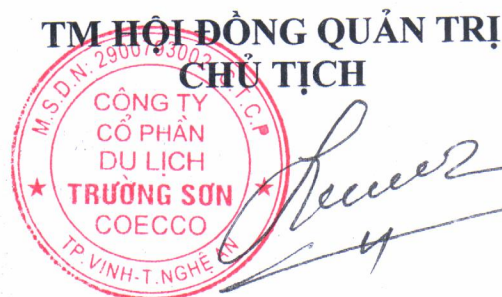 TM HỘI ĐỒNG QUẢN TRỊ
CHỦ TỊCH
CÔNG TY
CỔ PHẦN
DU LỊCH
TRƯỜNG SƠN
COECCO
TP.VINH-T.NGHỆ AN